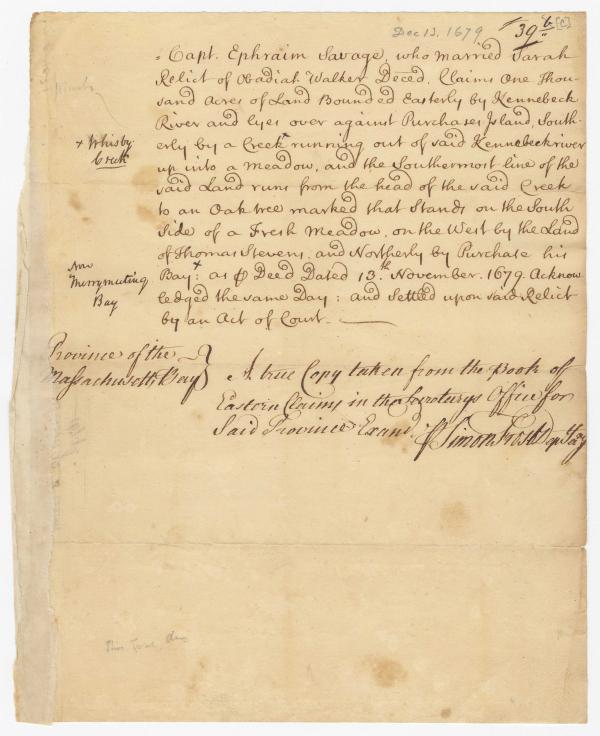 Dec 13. 1679
39
Capt. Ephraim Savage, who married Sarah
Relict of Obadiah Walker Deced, Claims One Thou-
sand Acres of Land Bounded Easterly by Kennebeck
River and lyes over against Purchases Island, South-
erly by a Creek + running out of said Kennebeck river
up into a Meadow, and the Southermost line of the
said Land runs from the head of the said Creek
to an Oak tree marked that Stands on the South
Side of a Fresh Meadow, on the West by the Land
of Thomas Stevens, and Northerly by Purchase his
Bay + : as ⅌ Deed Dated 13th. November. 1679. Acknow
ledged the same Day : and Settled upon said Relict
by an Act of Court.
+ Whisby
Creek
Now
Merrymeeting
Bay
Province of the
Massachusetts Bay
A true Copy taken from the Book of
Eastern Claims in the Secretarys Office for
Said Province Examd.
⅌ Simon Frost Dep Secy